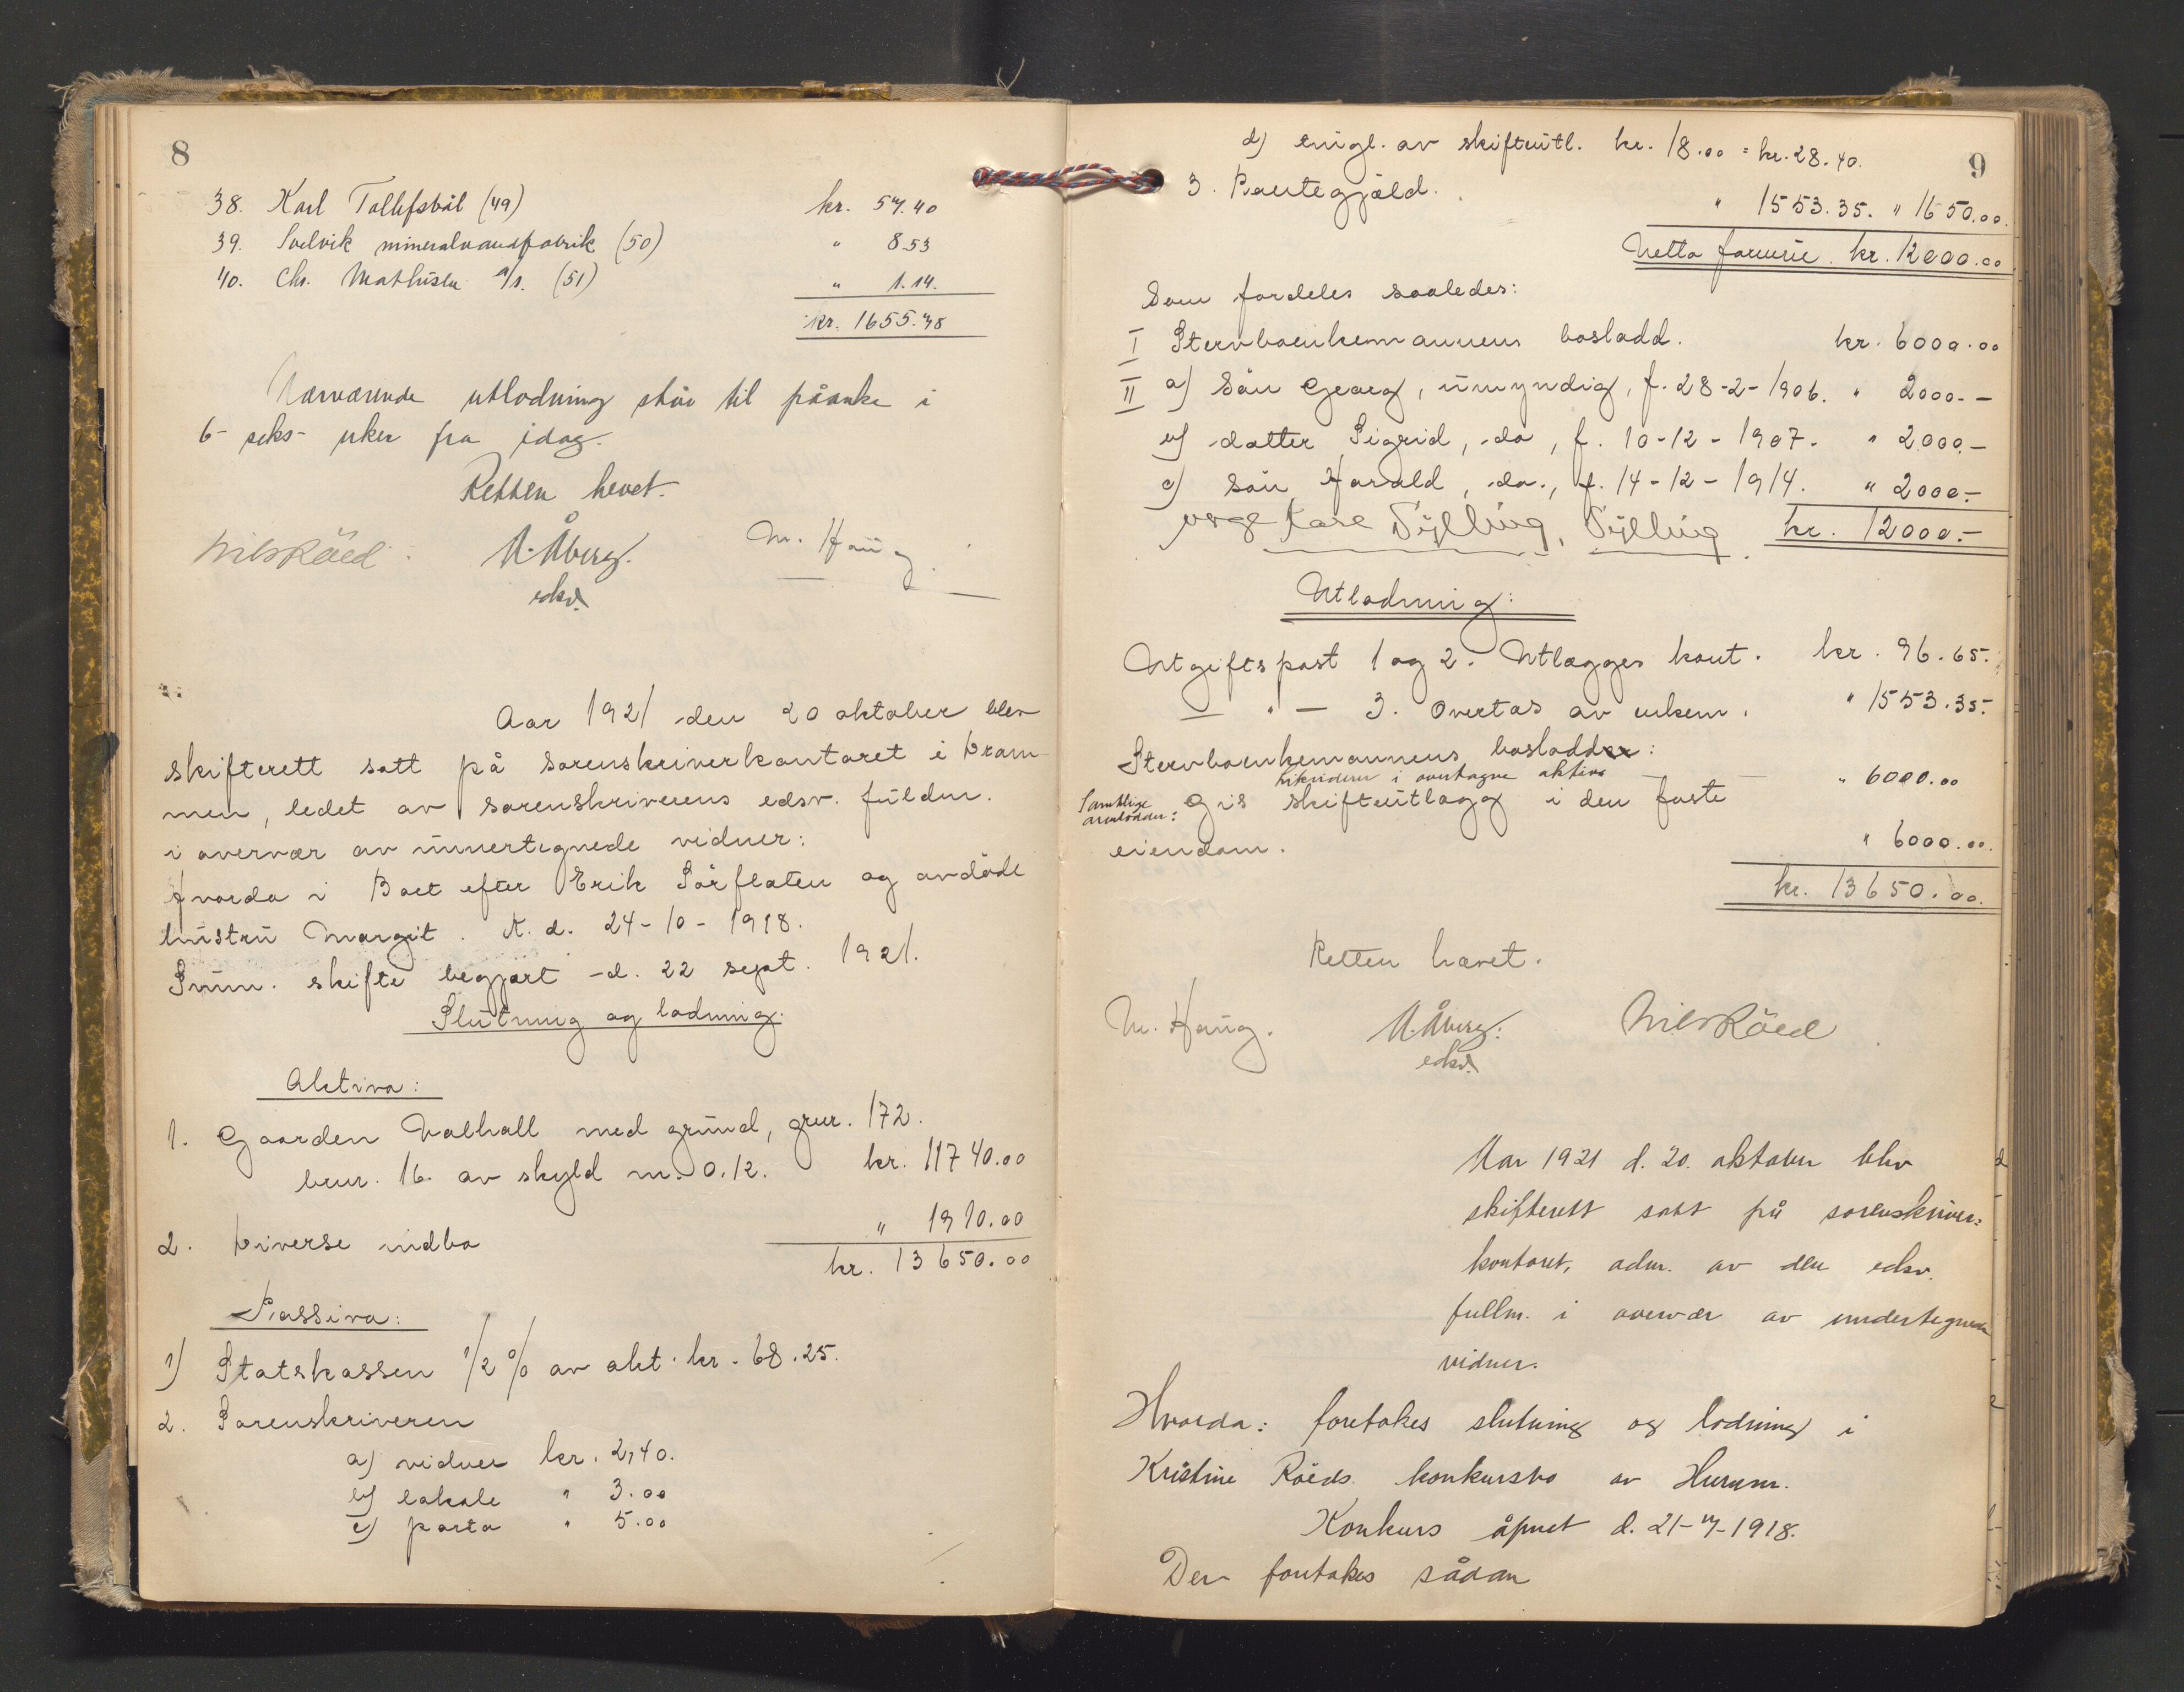 8
38. Karl Tollefsböl (49) kr. 57.40
39. Svelvik mineralvandfabrik (50) " 8.53
40. Chr. Mathisen A/S. (51) " 1.14.
kr. 1655.48
Nærværende utlodning står til påanke i
6 - seks - uker fra idag.
Retten hevet.
Nils Röed. N. Åberg. M. Haug.
edsv.
Aar 1921 den 20 oktober blev
skifterett satt på sorenskriverkontoret i Dram-
men, ledet av sorenskriverens edsv. fuldm.
i overvær av unnertegnede vidner:
Hvorda i Boet efter Erik Sörflaten og avdöde
hustru Margit. A. d. 24-10-1918.
Summ. skifte begjært d. 22 sept. 1921.
Slutning og lodning.
Aktiva:
1. Gaarden Valhall med grund, gnr. 172.
bnr. 16. av skyld m. 0.12. kr. 11740.00
2. Diverse indbo " 1910.00
kr. 13650.00
Passiva:
1) Statskassen 1/2 % av akt. kr. 68.25.
2. Sorenskriveren
a) vidner kr. 2,40.
b) lokale " 3.00
c) porto " 5.00
9
d) av skifteutl. kr. 18.00 = kr. 28.40.
3. Pantegjæld. " 1553.35. " 1650.00.
Netto formue kr. 12000.00
Som fordeles saaledes:
I Stervboenkemannens boslodd. kr. 6000.00
II a) Sön Georg, umyndig, f. 28-2-1906. " 2000.-
b) datter Sigrid, do, f. 10-12-1907. " 2000.-
c) sön Harald, do., f. 14-12-1914. " 2000.-
verge Kare Sylling, Sylling. kr. 12000.-
Utlodning:
Utgiftspost 1 og 2. Utlægges kont. kr. 96.65.
— " — 3. Overtas av enkem. " 1553.35.
Stervboenkemannens boslodd:
Likviderer i overtagne aktiva — " 6000.00
Samtlige arvelodder: Gis skifteutlægg i den faste
eiendom. " 6000.00.
kr. 13650.00.
Retten hævet.
M. Haug. N. Åberg. Nils Röed
edsv.
Aar 1921 d. 20. oktober blev
skifterett satt på sorenskriver-
kontoret, adm. av den edsv.
fullm. i overvær av undertegnede
vidner.
Hvorda: foretakes slutning og lodning i
Kristine Röeds konkursbo av Hurum.
Konkurs åpnet d. 21-4-1918.
Der foretakes sådan